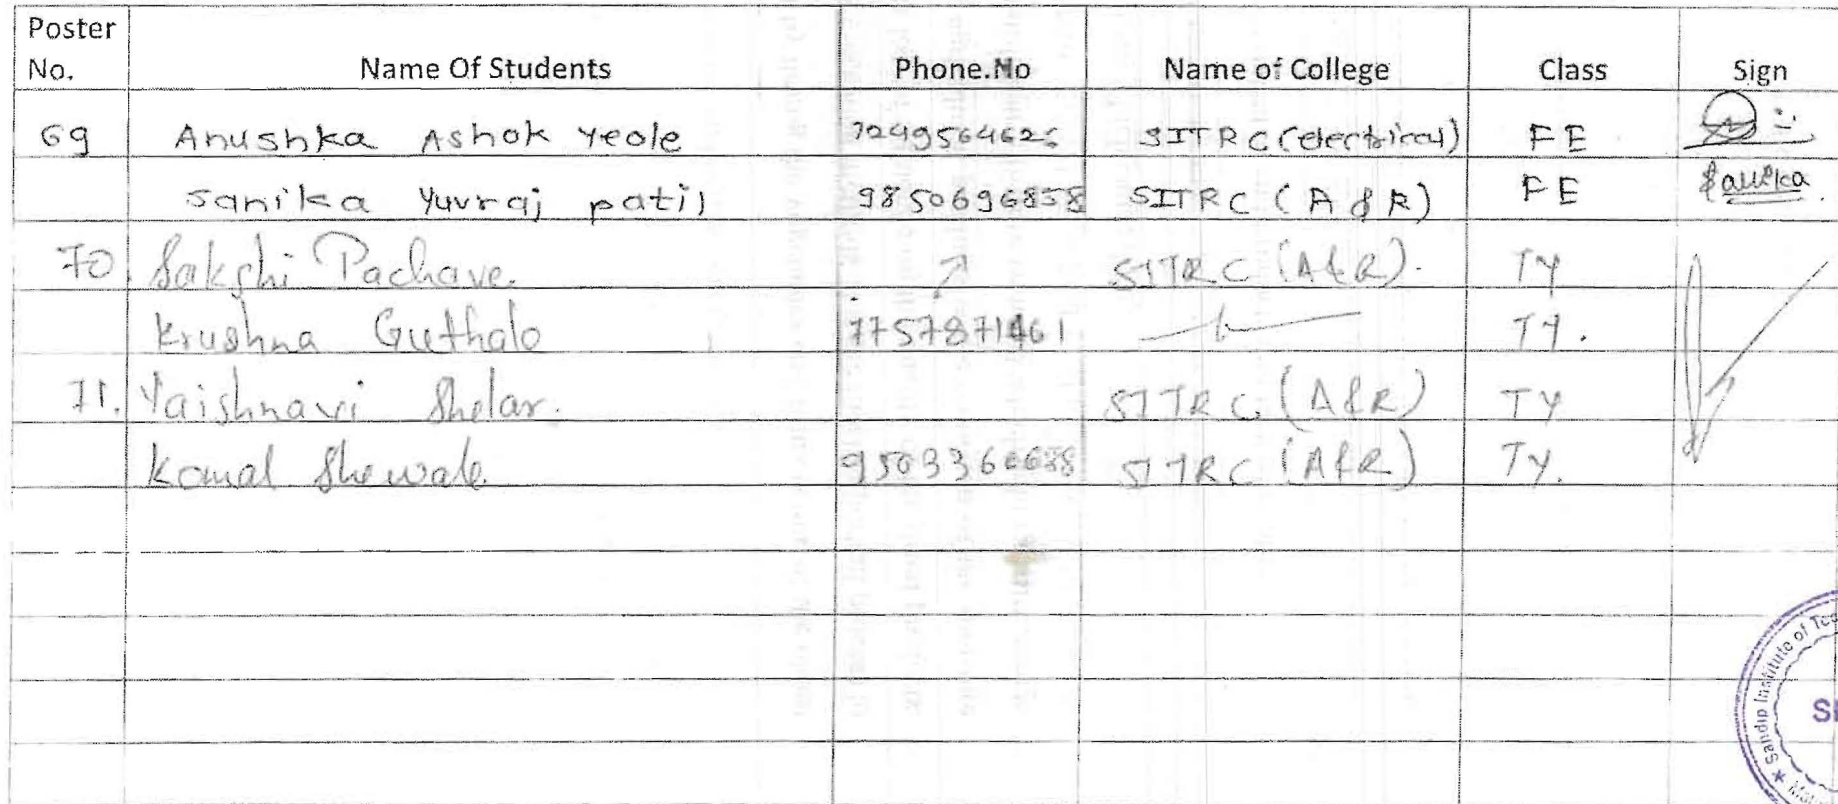 Poster No. Name Of Students Phone.No Name of College Class Sign
69 Anushka Ashok Yeole 7249564625 SITRC (electrical) FE
Sanika Yuvraj patil 9850696858 SITRC (A & R) FE Sanika
70 Sakshi Pachave. SITRC (A&R). TY
Krushna 7757871461 TY.
71. Vaishnavi Shelar. SITRC (A&R) TY
Komal Shewale. SITRC (A&R) TY.
Sandip Institute of